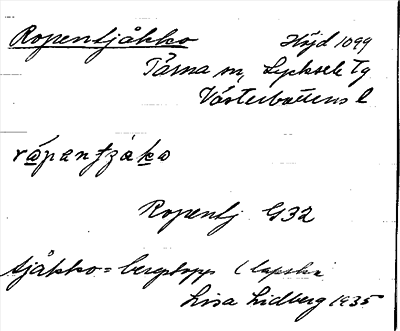 Ropentjåkko Höjd 1099
Tärna sn, Lycksele Tg
Västerbottens l
rápantzáko
Ropentj G32
tjåkko = bergstopp (lapska
Lisa Lidberg 1935